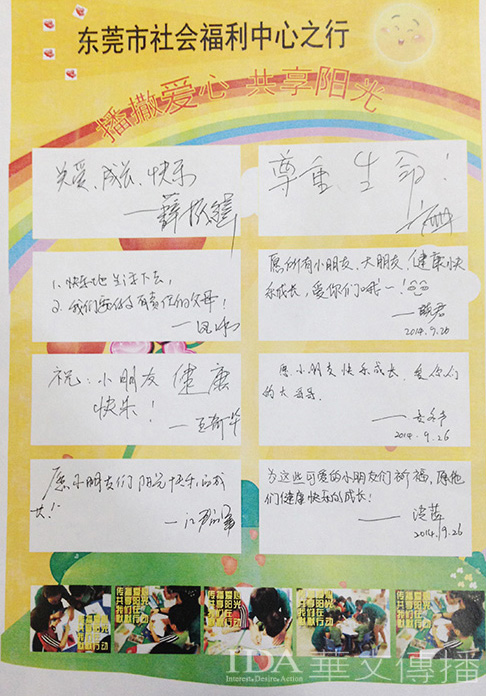 东莞市社会福利中心之行
播撒爱心 共享阳光
关爱、成长、快乐
尊重生命！
1、快乐地生活下去，
2、我们要做有责任的父母！
愿所有小朋友、大朋友，健康快
乐成长，爱你们哦～！
2014.9.26
祝：小朋友健康
快乐！
愿小朋友快乐成长，爱你们
的大哥哥
2014.9.26
愿小朋友们阳光快乐的成
长！
为这些可爱的小朋友们祈福，愿他
们健康快乐的成长！
2014.9.26
IDA 華文傳播
Interest.Desire.Action